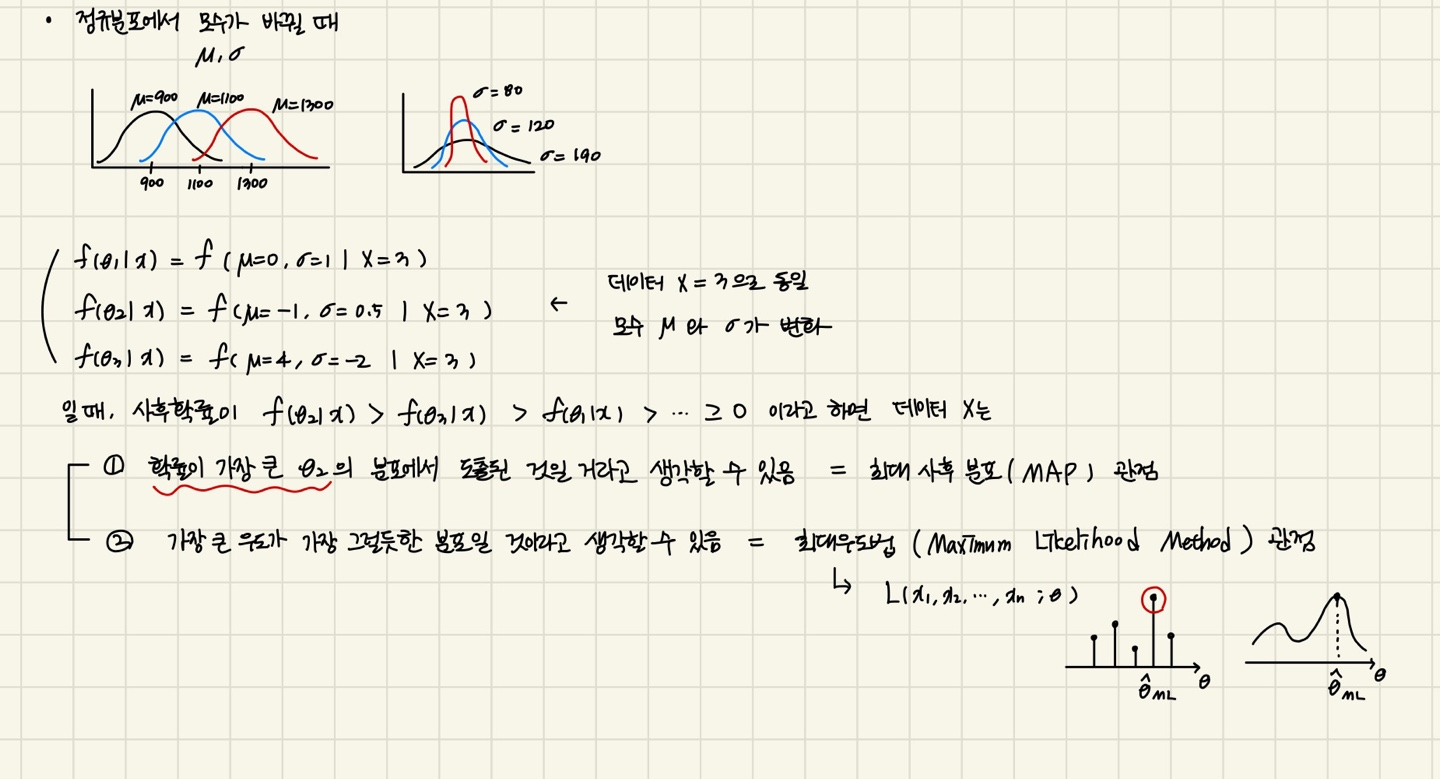 • 정규분포에서 모수가 바뀔 때
μ, σ
μ=900 μ=1100 μ=1300
900 1100 1300
σ=80
σ=120
σ=190
f(θ₁|x) = f(μ=0, σ=1 | X=3)
f(θ₂|x) = f(μ=-1, σ=0.5 | X=3)
f(θ₃|x) = f(μ=4, σ=-2 | X=3)
← 데이터 X=3으로 동일
모수 μ와 σ가 변화
일 때, 사후확률이 f(θ₂|x) > f(θ₃|x) > f(θ₁|x) > ⋯ ≥ 0 이라고 하면 데이터 X는
① 확률이 가장 큰 θ₂의 분포에서 도출된 것일 거라고 생각할 수 있음 = 최대 사후 분포(MAP) 관점
② 가장 큰 우도가 가장 그럴듯한 분포일 것이라고 생각할 수 있음 = 최대우도법 (Maximum Likelihood Method) 관점
↳ L(x₁, x₂, ⋯, xₙ ; θ)
θ̂ML θ
θ̂ML θ